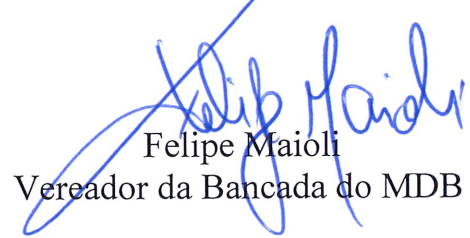 Felipe Maioli
Felipe Maioli
Vereador da Bancada do MDB